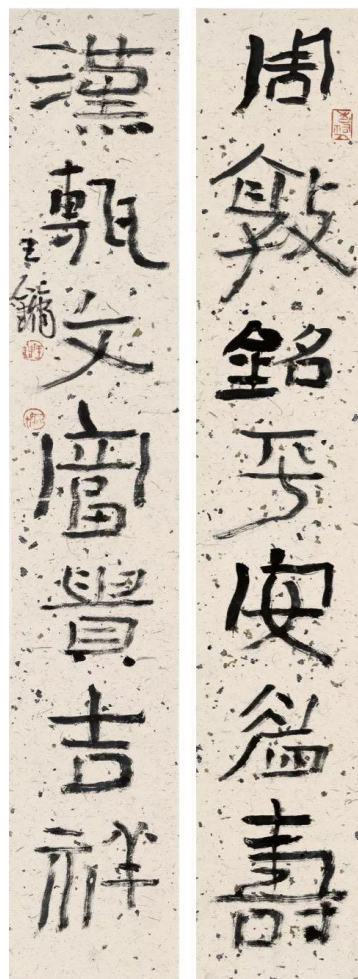 周敦銘平安益壽
漢甎文富貴吉祥
王鏞